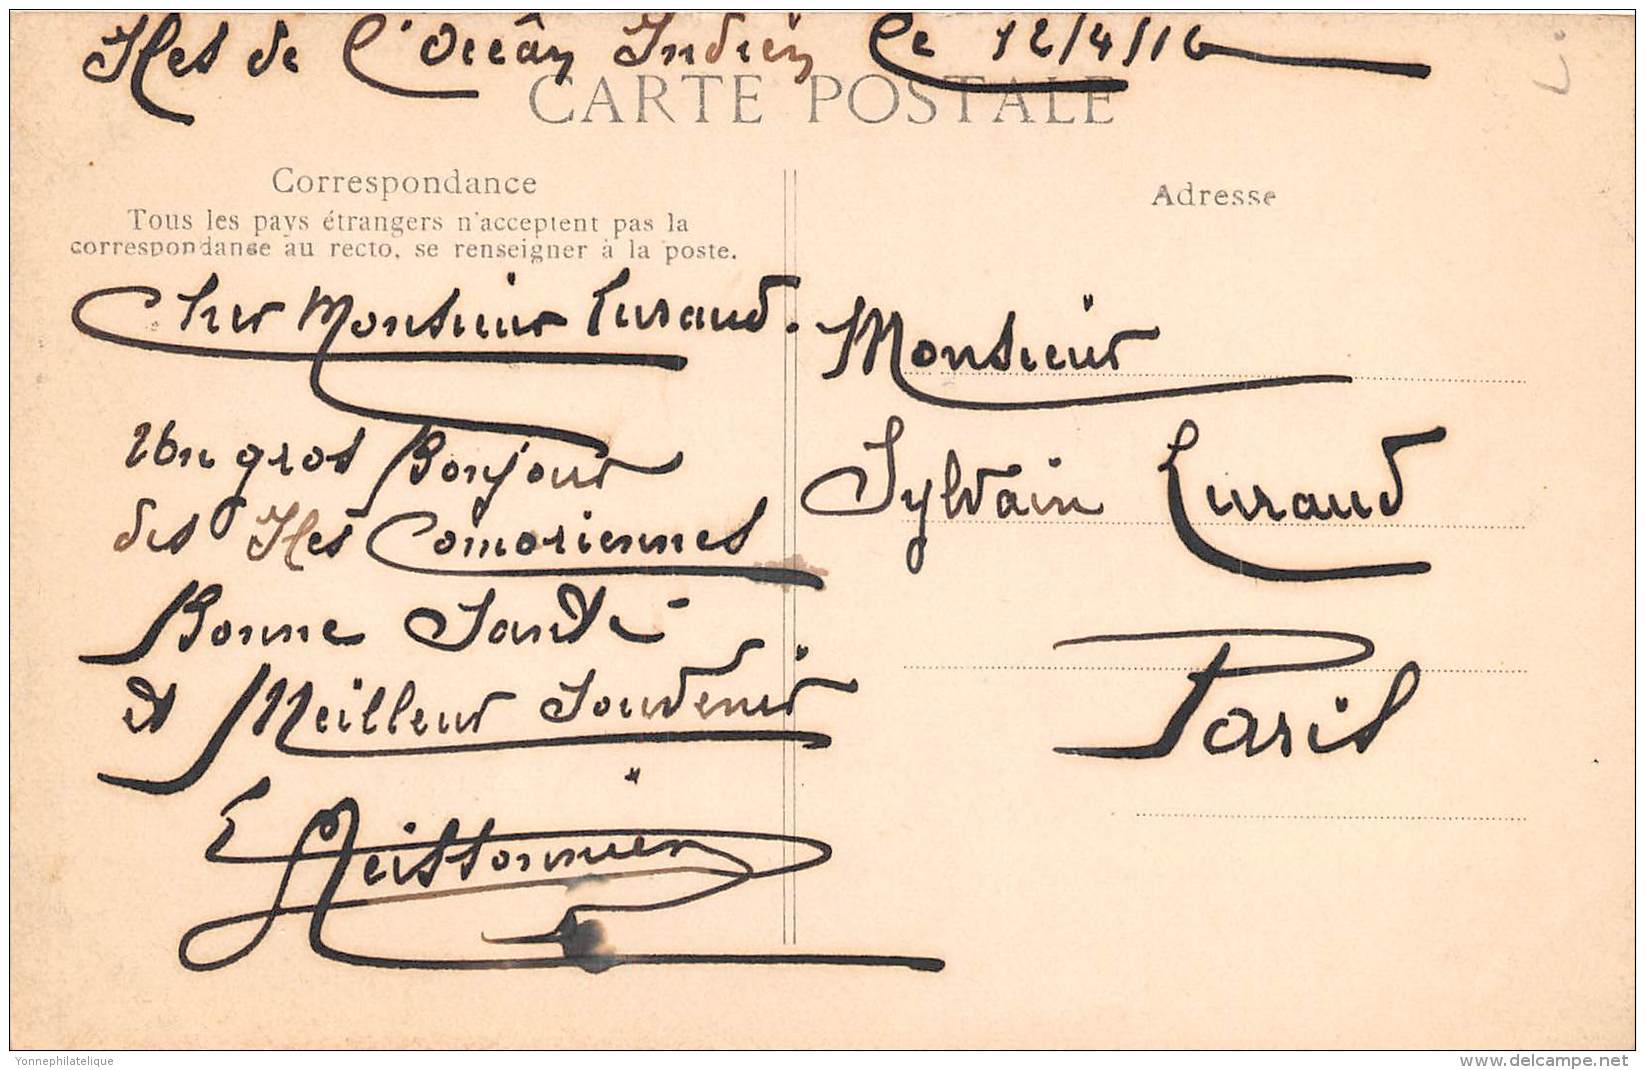 Iles de l'Océan Indien le 12/4/16
CARTE POSTALE
Correspondance
Tous les pays étrangers n'acceptent pas la
correspondance au recto, se renseigner à la poste.
Adresse
Cher Monsieur Luraud.
Un gros Bonjour
des Iles Comoriennes
Bonne Santé
et Meilleur Souvenir
Meissonnier
Monsieur
Sylvain Luraud
Paris
Yonnephilatelique
delcampe.net